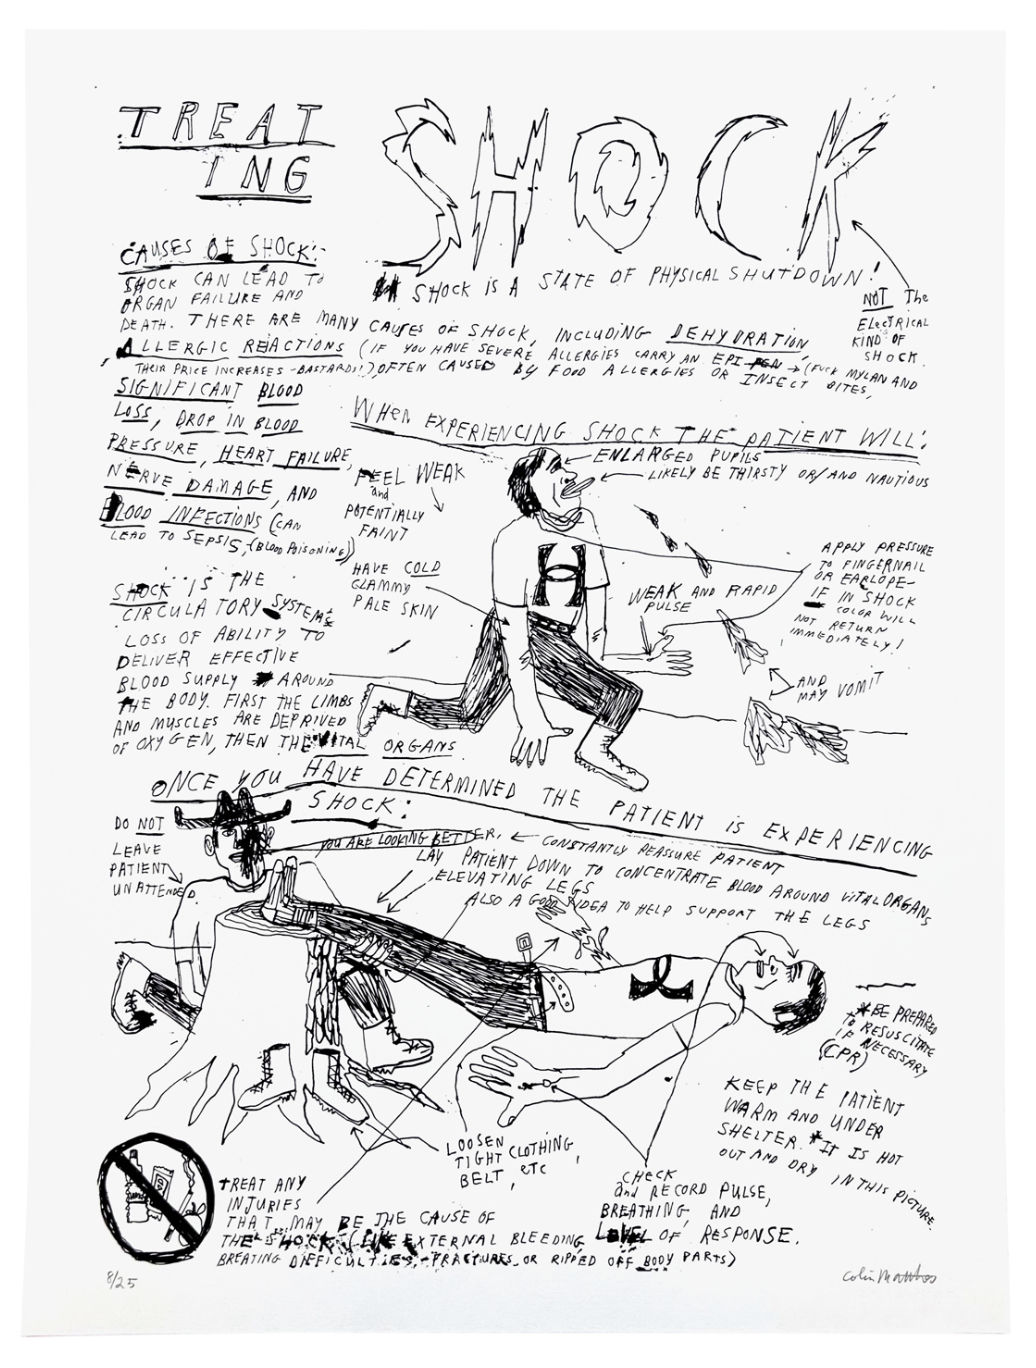 TREAT
ING
SHOCK
CAUSES OF SHOCK:
SHOCK IS A STATE OF PHYSICAL SHUTDOWN!
NOT The
ELECTRICAL
KIND OF
SHOCK
SHOCK CAN LEAD TO
ORGAN FAILURE AND
DEATH. THERE ARE MANY CAUSES OF SHOCK, INCLUDING DEHYDRATION,
ALLERGIC REACTIONS (IF YOU HAVE SEVERE ALLERGIES CARRY AN EPI PEN → (FUCK MYLAN AND
THEIR PRICE INCREASES - BASTARDS!), OFTEN CAUSED BY FOOD ALLERGIES OR INSECT BITES,
SIGNIFICANT BLOOD
LOSS, DROP IN BLOOD
PRESSURE, HEART FAILURE,
NERVE DAMAGE, AND
BLOOD INFECTIONS (CAN
LEAD TO SEPSIS, (BLOOD POISONING))
SHOCK IS THE
CIRCULATORY SYSTEMS
LOSS OF ABILITY TO
DELIVER EFFECTIVE
BLOOD SUPPLY AROUND
THE BODY. FIRST THE LIMBS
AND MUSCLES ARE DEPRIVED
OF OXYGEN, THEN THE VITAL ORGANS
WHEN EXPERIENCING SHOCK THE PATIENT WILL:
ENLARGED PUPILS
LIKELY BE THIRSTY OR/AND NAUTIOUS
FEEL WEAK
and
POTENTIALLY
FAINT
HAVE COLD
CLAMMY
PALE SKIN
WEAK AND RAPID
PULSE
APPLY PRESSURE
TO FINGERNAIL
OR EARLOPE-
IF IN SHOCK
COLOR WILL
NOT RETURN
IMMEDIATELY!
AND
MAY VOMIT
ONCE YOU HAVE DETERMINED THE PATIENT IS EXPERIENCING
SHOCK:
DO NOT
LEAVE
PATIENT
UNATTENDED
YOU ARE LOOKING BETTER. ← CONSTANTLY REASSURE PATIENT
LAY PATIENT DOWN TO CONCENTRATE BLOOD AROUND VITAL ORGANS
ELEVATING LEGS
ALSO A GOOD IDEA TO HELP SUPPORT THE LEGS
*BE PREPARED
TO RESUSCITATE
IF NECESSARY
(CPR)
KEEP THE PATIENT
WARM AND UNDER
SHELTER. *IT IS HOT
OUT AND DRY IN THIS PICTURE.
LOOSEN
TIGHT CLOTHING,
BELT, ETC
CHECK
and RECORD PULSE,
BREATHING, AND
LEVEL OF RESPONSE.
TREAT ANY
INJURIES
THAT MAY BE THE CAUSE OF
THE SHOCK (LIKE EXTERNAL BLEEDING
BREATING DIFFICULTIES, FRACTURES, OR RIPPED OFF BODY PARTS)
8/25
Colin Matthes